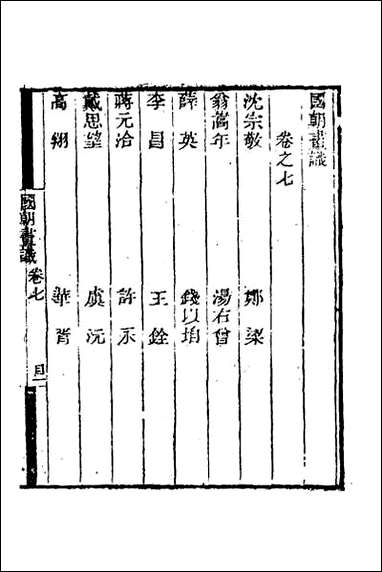 國朝畫識
卷之七
沈宗敬 鄭梁
翁嵩年 湯右曾
薛英 錢以塏
李昌 王銓
蔣元洽 許永
戴思望 虞沅
高翔 華胥
國朝畫識 卷七 目一